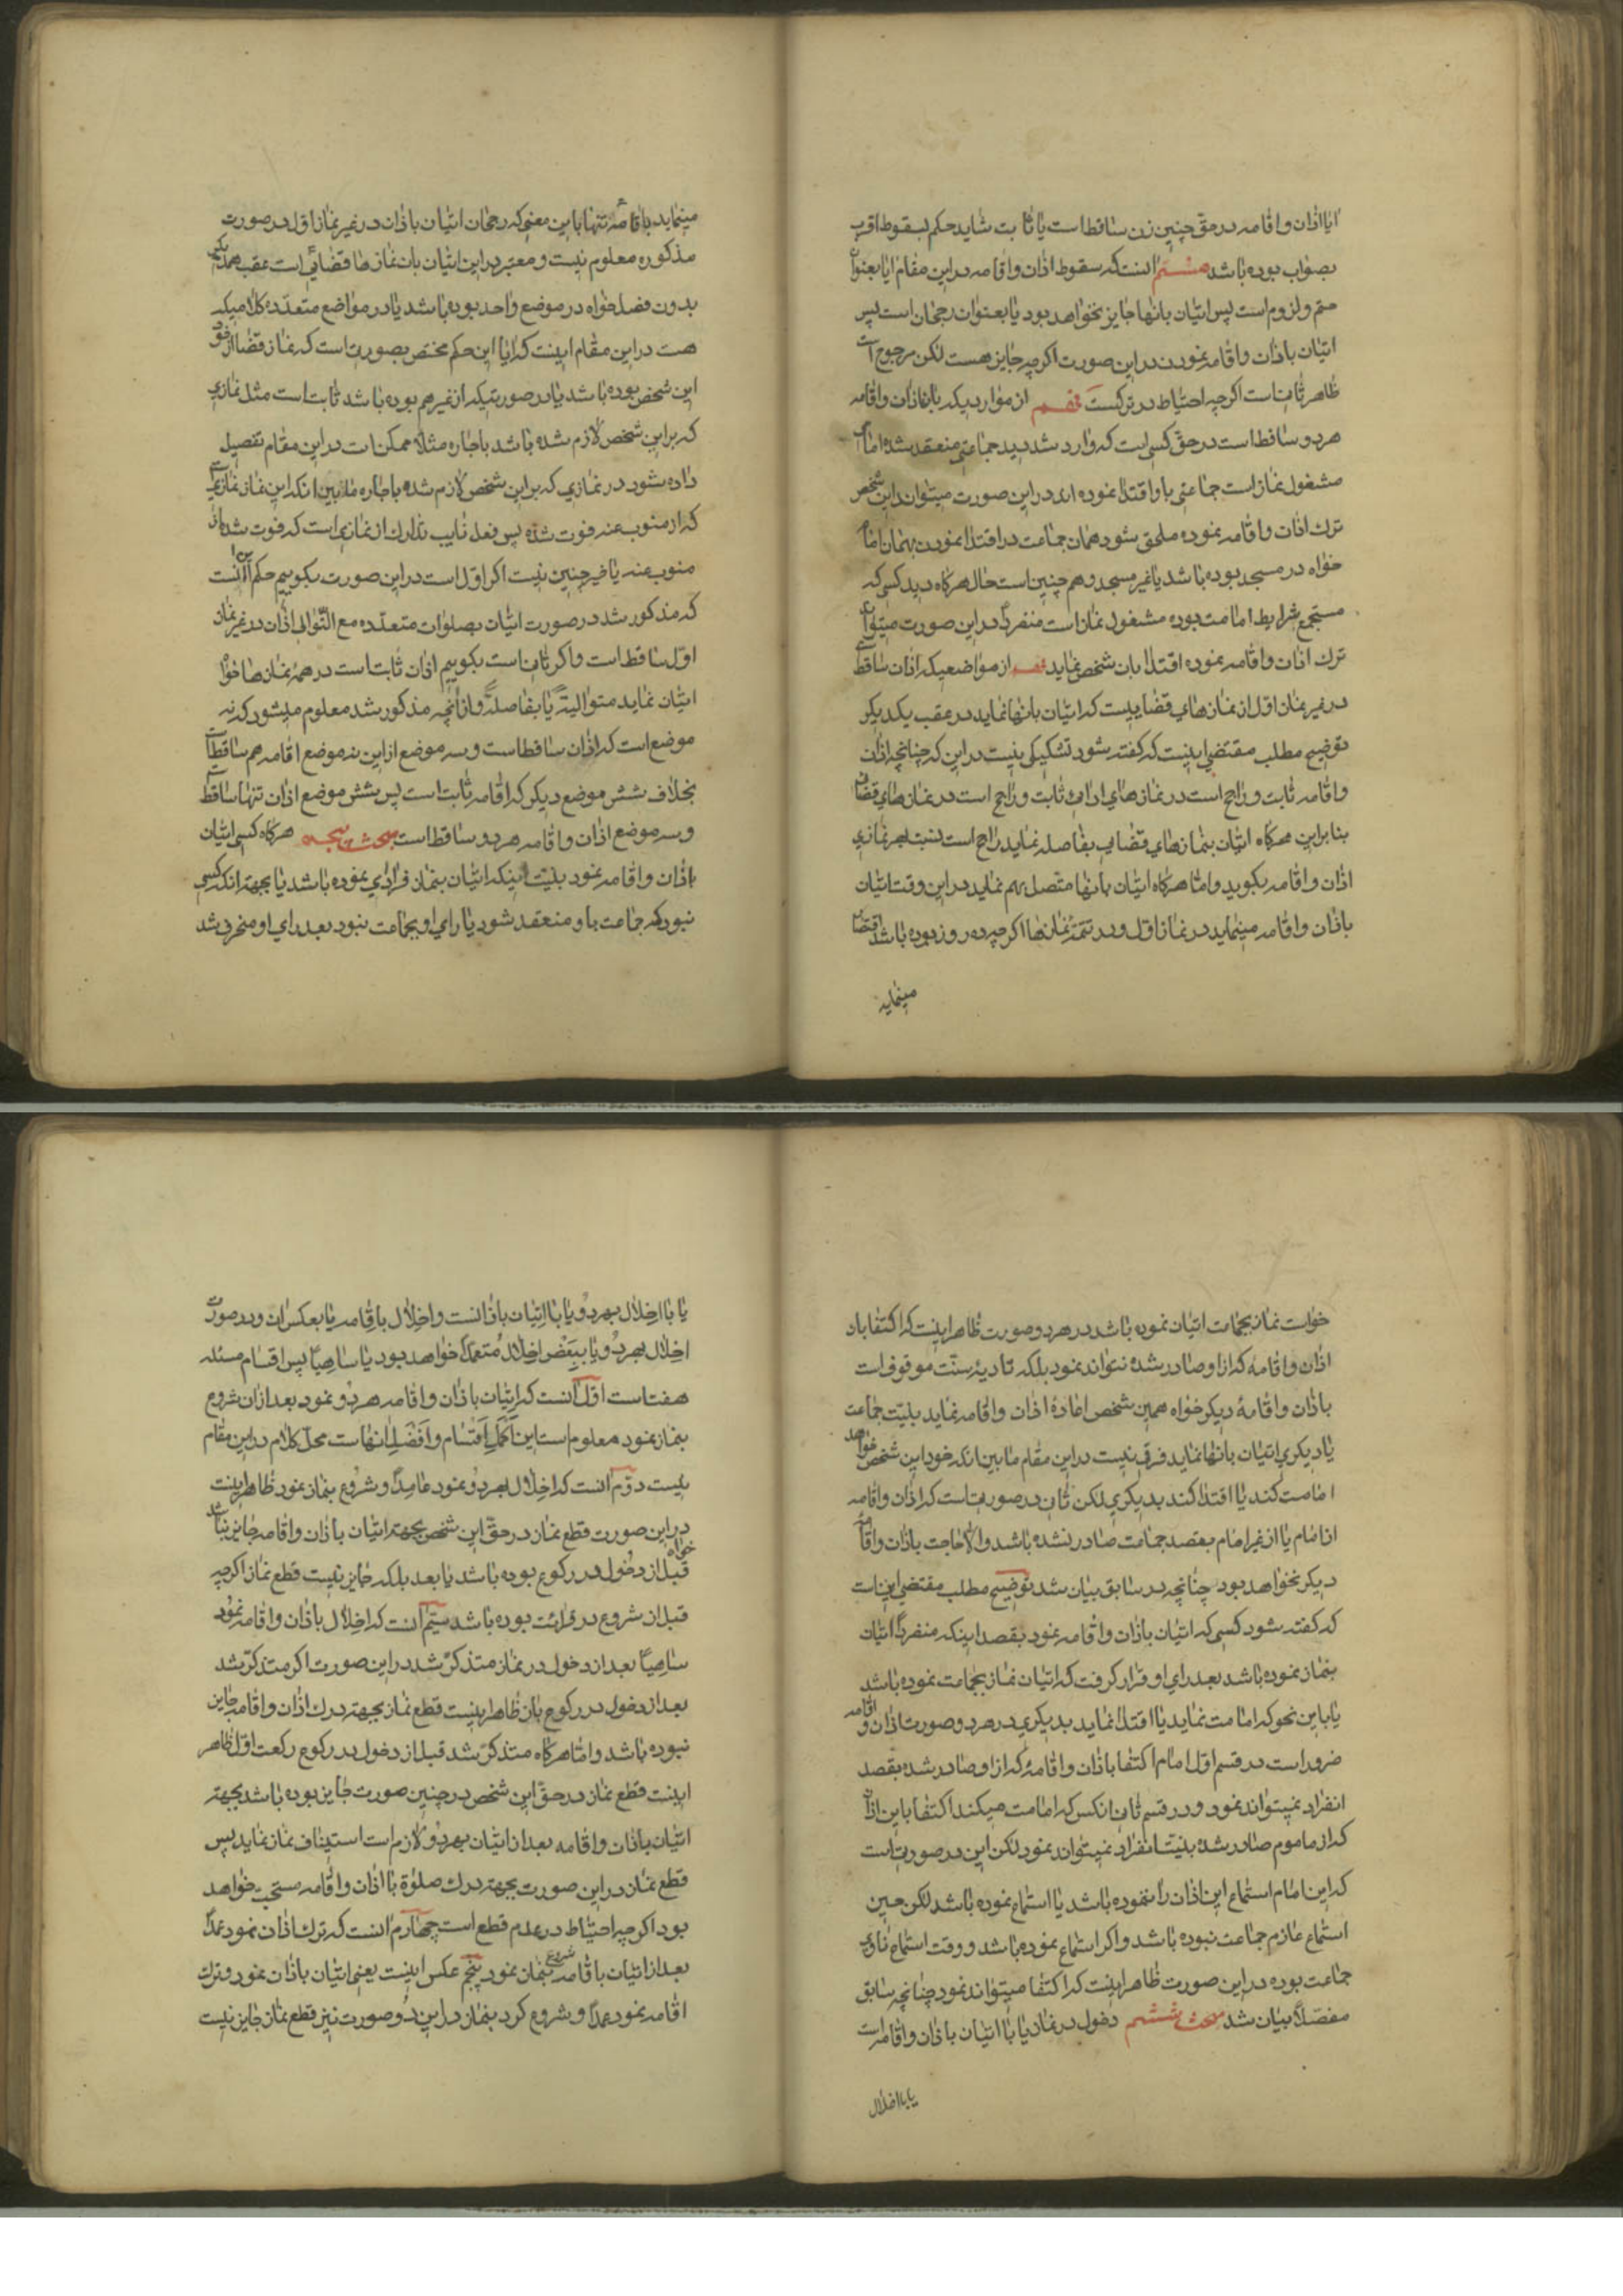 ایا اذان و اقامه در حقّ چنین زن ساقط است یا ثابت شاید حکم بسقوط اقرب
بصواب بوده باشد هشتم انست که سقوط اذان و اقامه در این مقام ایا بعنوان
حتم و لزوم است پس اتیان بانها جایز نخواهد بود یا بعنوان رجحان است پس
اتیان باذان و اقامه نمودن در این صورت اگرچه جایز هست لکن مرجوح است
ظاهر ثانی است اگرچه احتیاط در ترکست نهم از موارد یکه با نماز اذان و اقامه
هر دو ساقط است در حقّ کسی است که وارد شد دید جماعتی منعقد شده امام
مشغول نماز است جماعتی باو اقتدا نموده اند در این صورت میتواند این شخص
ترك اذان و اقامه نموده ملحق شود همان جماعت در اقتدا نمودن بهمان امام
خواه در مسجد بوده باشد یا غیر مسجد و هم چنین است حال هرکاه دید کسی که
مستجمع شرایط امامت بوده مشغول نماز است منفردًا در این صورت میتوان
ترك اذان و اقامه نموده اقتدا بان شخص نماید از مواضعیکه اذان ساقط است
در غیر نماز اول از نمازهای قضاییست که اتیان بانها نماید در عقب یکدیکر
توضیح مطلب مقتضی اینست که کفته شود تشکیکی نیست در این که چنانچه اذان
و اقامه ثابت و راجح است در نمازهای ادائی ثابت و راجح است در نمازهای قضائی
بنابراین هرکاه اتیان بنمازهای قضایی بفاصله نماید راجح است نسبت بهر نمازی
اذان و اقامه بکوید و امّا هرکاه اتیان بانها متّصل بهم نماید در این وقت اتیان
باذان و اقامه مینماید در نماز اوّل و در تتمّهٔ نمازها اکرچه ده روز بوده باشد اقتصار
مینماید
مینماید باقامهٔ تنها باین معنی که رجحان اتیان باذان در غیر نماز اوّل در صورت
مذکوره معلوم نیست و معتبر در این اتیان بان نمازها قضائی است عقب همدیکر
بدون فصل خواه در موضع واحد بوده باشد یا در مواضع متعدّده کلامیکه
هست در این مقام اینست که ایا این حکم مختص بصورت است که نماز قضا از خود
این شخص بوده باشد یا در صورتیکه از غیر هم بوده باشد ثابت است مثل نمازی
که بر این شخص لازم شده باشد باجاره مثلا ممکن است در این مقام تفصیل
داده شود در نمازی که بر این شخص لازم شده باجاره مابین انکه این نماز نمازیست
که از منوب عنه فوت شده پس فعل نایب تدارك ان نمازی است که فوت شده از
منوب عنه یا خیر چنین نیست اکر اوّل است در این صورت بکوییم حکم انست
که مذکور شد در صورت اتیان بصلوات متعدّده مع التّوالی اذان در غیر نماز
اوّل ساقط است و اکر ثانی است بکوییم اذان ثابت است در همهٔ نمازها خواه
اتیان نماید متوالیة یا بفاصله و از انچه مذکور شد معلوم میشود که نه
موضع است که اذان ساقط است و سه موضع از این نه موضع اقامه هم ساقط است
بخلاف شش موضع دیکر که اقامه ثابت است پس شش موضع اذان تنها ساقط است
و سه موضع اذان و اقامه هر دو ساقط است مبحث پنجم هرکاه کسی اتیان
باذان و اقامه نمود بنیت اینکه اتیان بنماز فرادی نموده باشد یا بجهة انکه کسی
نبود که جماعت باو منعقد شود یا رای او بجماعت نبود بعد رای او منجر شد
خواست نماز بجماعت اتیان نموده باشد در هر دو صورت ظاهر اینست که اکتفا بان
اذان و اقامه که از او صادر شده نتواند نمود بلکه تادیهٔ سنّت موقوف است
باذان و اقامهٔ دیکر خواه همین شخص اعادهٔ اذان و اقامه نماید بنیّت جماعت
یا دیکری اتیان بانها نماید فرقی نیست در این مقام مابین انکه خود این شخص خواهد
امامت کند یا اقتدا کند بدیکری لکن ثانی در صورتیست که اذان و اقامه
از امام یا از غیر امام بقصد جماعت صادر نشده باشد والا حاجت باذان و اقامه
دیکر نخواهد بود چنانچه در سابق بیان شد توضیح مطلب مقتضی این است
که کفته شود کسی که اتیان باذان و اقامه نمود بقصد اینکه منفردًا اتیان
بنماز نموده باشد بعد رای او قرار کرفت که اتیان نماز بجماعت نموده باشد
یا باین نحو که امامت نماید یا اقتدا نماید بدیکری در هر دو صورت اذان و اقامه
ضرور است در قسم اوّل امام اکتفا باذان و اقامهٔ که از او صادر شده بقصد
انفراد نمیتواند نمود و در قسم ثانی انکس که امامت میکند اکتفا باین اذان
که از ماموم صادر شده بنیت انفراد نمیتواند نمود لکن این در صورتیست
که این امام استماع این اذان را ننموده باشد یا استماع نموده باشد لکن حین
استماع عازم جماعت نبوده باشد و اکر استماع نموده باشد و وقت استماع ناوی
جماعت بوده در این صورت ظاهر اینست که اکتفا میتواند نمود چنانچه سابق
مفصّلاً بیان شد مبحث ششم دخول در نماز یا با اتیان باذان و اقامه است
یا با اخلال
یا با اخلال بهر دو یا با اتیان باذانست و اخلال باقامه یا بعکس ان و در صورت
اخلال بهر دو یا ببعض اخلال متعمدًا خواهد بود یا ساهیًا پس اقسام مسئله
هفت است اوّل انست که اتیان باذان و اقامه هر دو نمود بعد از ان شروع
بنماز نمود معلوم است این اکمل اقسام و افضل انهاست محلّ کلام در این مقام
نیست دوّم انست که اخلال بهر دو نمود عامدًا و شروع بنماز نمود ظاهر اینست
در این صورت قطع نماز در حقّ این شخص بجهة اتیان باذان و اقامه جایز نباشد خواه
قبل از دخول در رکوع بوده باشد یا بعد بلکه جایز نیست قطع نماز اکرچه
قبل از شروع در قرائت بوده باشد سیّم انست که اخلال باذان و اقامه نمود
ساهیًا بعد از دخول در نماز متذکّر شد در این صورت اکر متذکّر شد
بعد از دخول در رکوع بان ظاهر اینست قطع نماز بجهة درك اذان و اقامه جایز
نبوده باشد و امّا هرکاه متذکّر شد قبل از دخول در رکوع رکعت اوّل ظاهر
اینست قطع نماز در حقّ این شخص در چنین صورت جایز بوده باشد بجهة
اتیان باذان و اقامه بعد از اتیان بهر دو لازم است استیناف نماز نماید پس
قطع نماز در این صورت بجهة درك صلوة با اذان و اقامه مستحبّ خواهد
بود اکرچه احتیاط در عدم قطع است چهارم انست که ترك اذان نمود عمدًا
بعد از اتیان باقامه شروع بنماز نمود پنجم عکس اینست یعنی اتیان باذان نمود و ترك
اقامه نمود عمدًا و شروع کرد بنماز در این دو صورت نیز قطع نماز جایز نیست